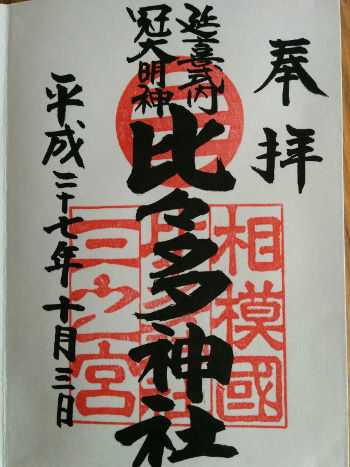 奉拝
延喜式内
冠大明神
比々多神社
相模國
三之宮
平成二十七年十月三日